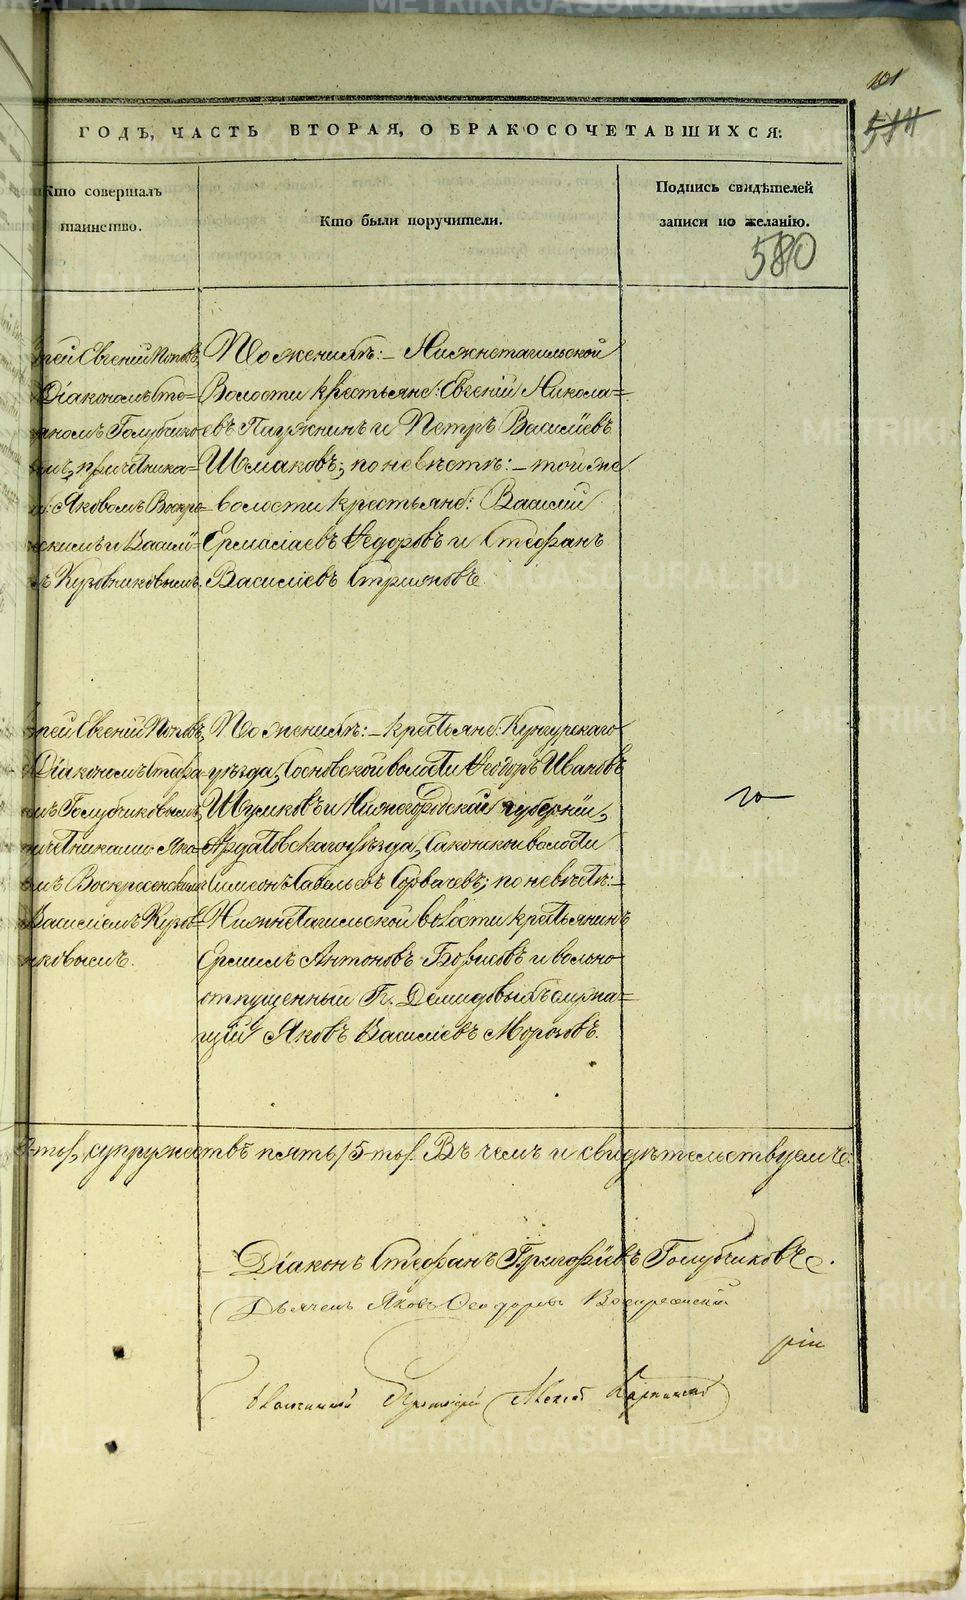 101
511
ГОДЪ, ЧАСТЬ ВТОРАЯ, О БРАКОСОЧЕТАВШИХСЯ:
Кто совершалъ
таинство.
Кто были поручители.
Подпись свидѣтелей
записи по желанію.
580
рей Евгеній Поповъ,
Діакономъ Сте=
аномъ Голубчико
вымъ, причетника=
и: Яковомъ Воскре=
нскимъ и Василі=
мъ Кузовниковымъ.
По женихѣ:– Нижнетагильской
Волости крестьяне: Евгеній Никола=
евъ Паужнинъ и Петръ Василіевъ
Шмаковъ; по невѣстѣ:– той же
волости крестьяне: Василій
Ермалаевъ Ѳедоровъ и Стефанъ
Василіевъ Стрижовъ.
рей Евгеній Поповъ,
Діакономъ Стефа=
мъ Голубчиковымъ,
ичетниками: Яко=
омъ Воскресенскимъ
Василіемъ Кузов=
иковымъ.
По женихѣ:– крестьяне: Кунгурскаго
уѣзда, Сосновской волости Ѳеодоръ Ивановъ
Шумковъ и Нижегородской губерніи,
Ардатовскаго уѣзда, Саконской волости
Симеонъ Савельевъ Горбачевъ; по невѣстѣ:–
Нижнетагильской волости крестьянинъ
Ермилъ Антоновъ Борисовъ и вольно
отпущенный Гг. Демидовыхъ служа=
щій Яковъ Василіевъ Морозовъ.
-ть/, супружествъ пять /5-ть/. Въ чемъ и свидѣтельствуемъ:
Діаконъ Стефанъ Григоріевъ Голубчиковъ.
Дьячекъ Яковъ Ѳеодоровъ Воскресенскій
Благочинный Протоіерей Карпинскій